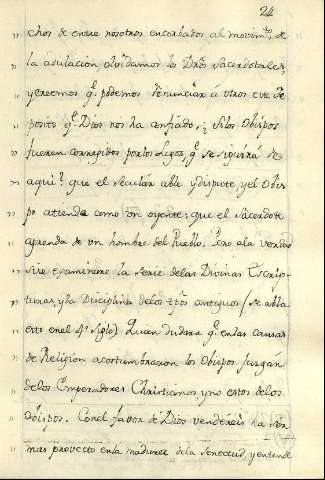 24
" chos de entre nosotros encorbados al movim.to de
" la adulacion olvidamos los Dros Sacerdotales,
" y creemos q.e podemos renunciar á otros este de
" posito q.e Dios nos ha confiado, ¿ Si los Obispos
" fueren corregidos por los Legos, q.e se siguirá de
" aqui? que el secular able y dispute, y el Obis
" po atienda como un oyente; que el Sacerdote
" aprenda de un hombre del Pueblo. Pero ala verdad
" si se examinare la serie de las Divinas Escrip-
" turas, y la Disciplina de los tpos antiguos (se abla
" esto en el 4º Siglo) Quien dudara q.e en las causas
" de Religion acostumbraron los Obispos juzgar
" de los Emperadores Christianos, y no estos de los
" Obispos. Con el favor de Dios vendereis ha
" mas provecto en la madurez de la Senectud, y entonde